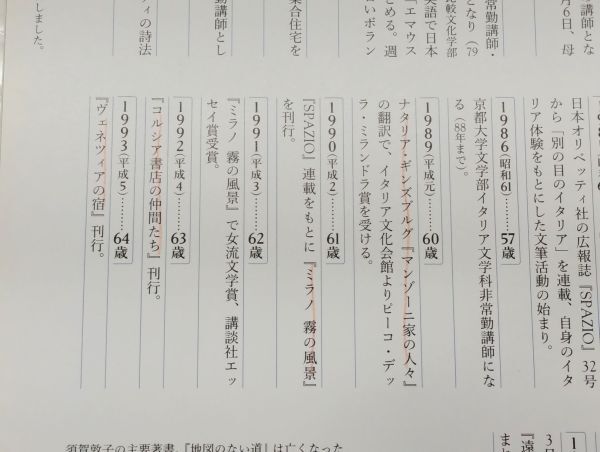 講師とな
月6日、母
常勤講師・
となり（79
比較文化学部
英語で日本
『エマウス
とめる。週
いボラン
集合住宅を
勤講師とし
ティの詩法
しました。
日本オリベッティ社の広報誌『SPAZIO』32号
から「別の目のイタリア」を連載、自身のイタ
リア体験をもとにした文筆活動の始まり。
1986（昭和61）………57歳
京都大学文学部イタリア文学科非常勤講師にな
る（88年まで）。
1989（平成元）………60歳
ナタリア・ギンズブルグ『マンゾーニ家の人々』
の翻訳で、イタリア文化会館よりピーコ・デッ
ラ・ミランドラ賞を受ける。
1990（平成2）………61歳
『SPAZIO』連載をもとに『ミラノ 霧の風景』
を刊行。
1991（平成3）………62歳
『ミラノ 霧の風景』で女流文学賞、講談社エッ
セイ賞受賞。
1992（平成4）………63歳
『コルシア書店の仲間たち』刊行。
1993（平成5）………64歳
『ヴェネツィアの宿』刊行。
『遠
まれ
須賀敦子の主要著書。『地図のない道』は亡くなった